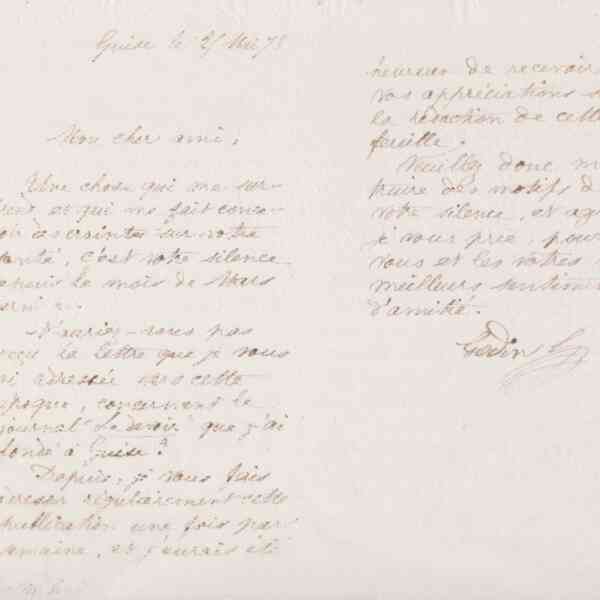 Guise le 25 Mai 78
Mon cher ami,
Une chose qui me sur-
prend et qui me fait conce-
voir des craintes sur votre
santé, c'est votre silence
depuis le mois de Mars
dernier.
N'auriez-vous pas
reçu la lettre que je vous
ai adressée vers cette
époque, concernant le
journal "Le devoir" que j'ai
fondé à Guise?
Depuis, je vous fais
adresser régulièrement cette
publication une fois par
semaine, et j'aurais été
heureux de recevoir
vos appréciations
la rédaction de cette
feuille.
Veuillez donc
truire des motifs
votre silence, et
je vous prie, pour
vous et les vôtres
meilleurs sentiments
d'amitié.
Godin